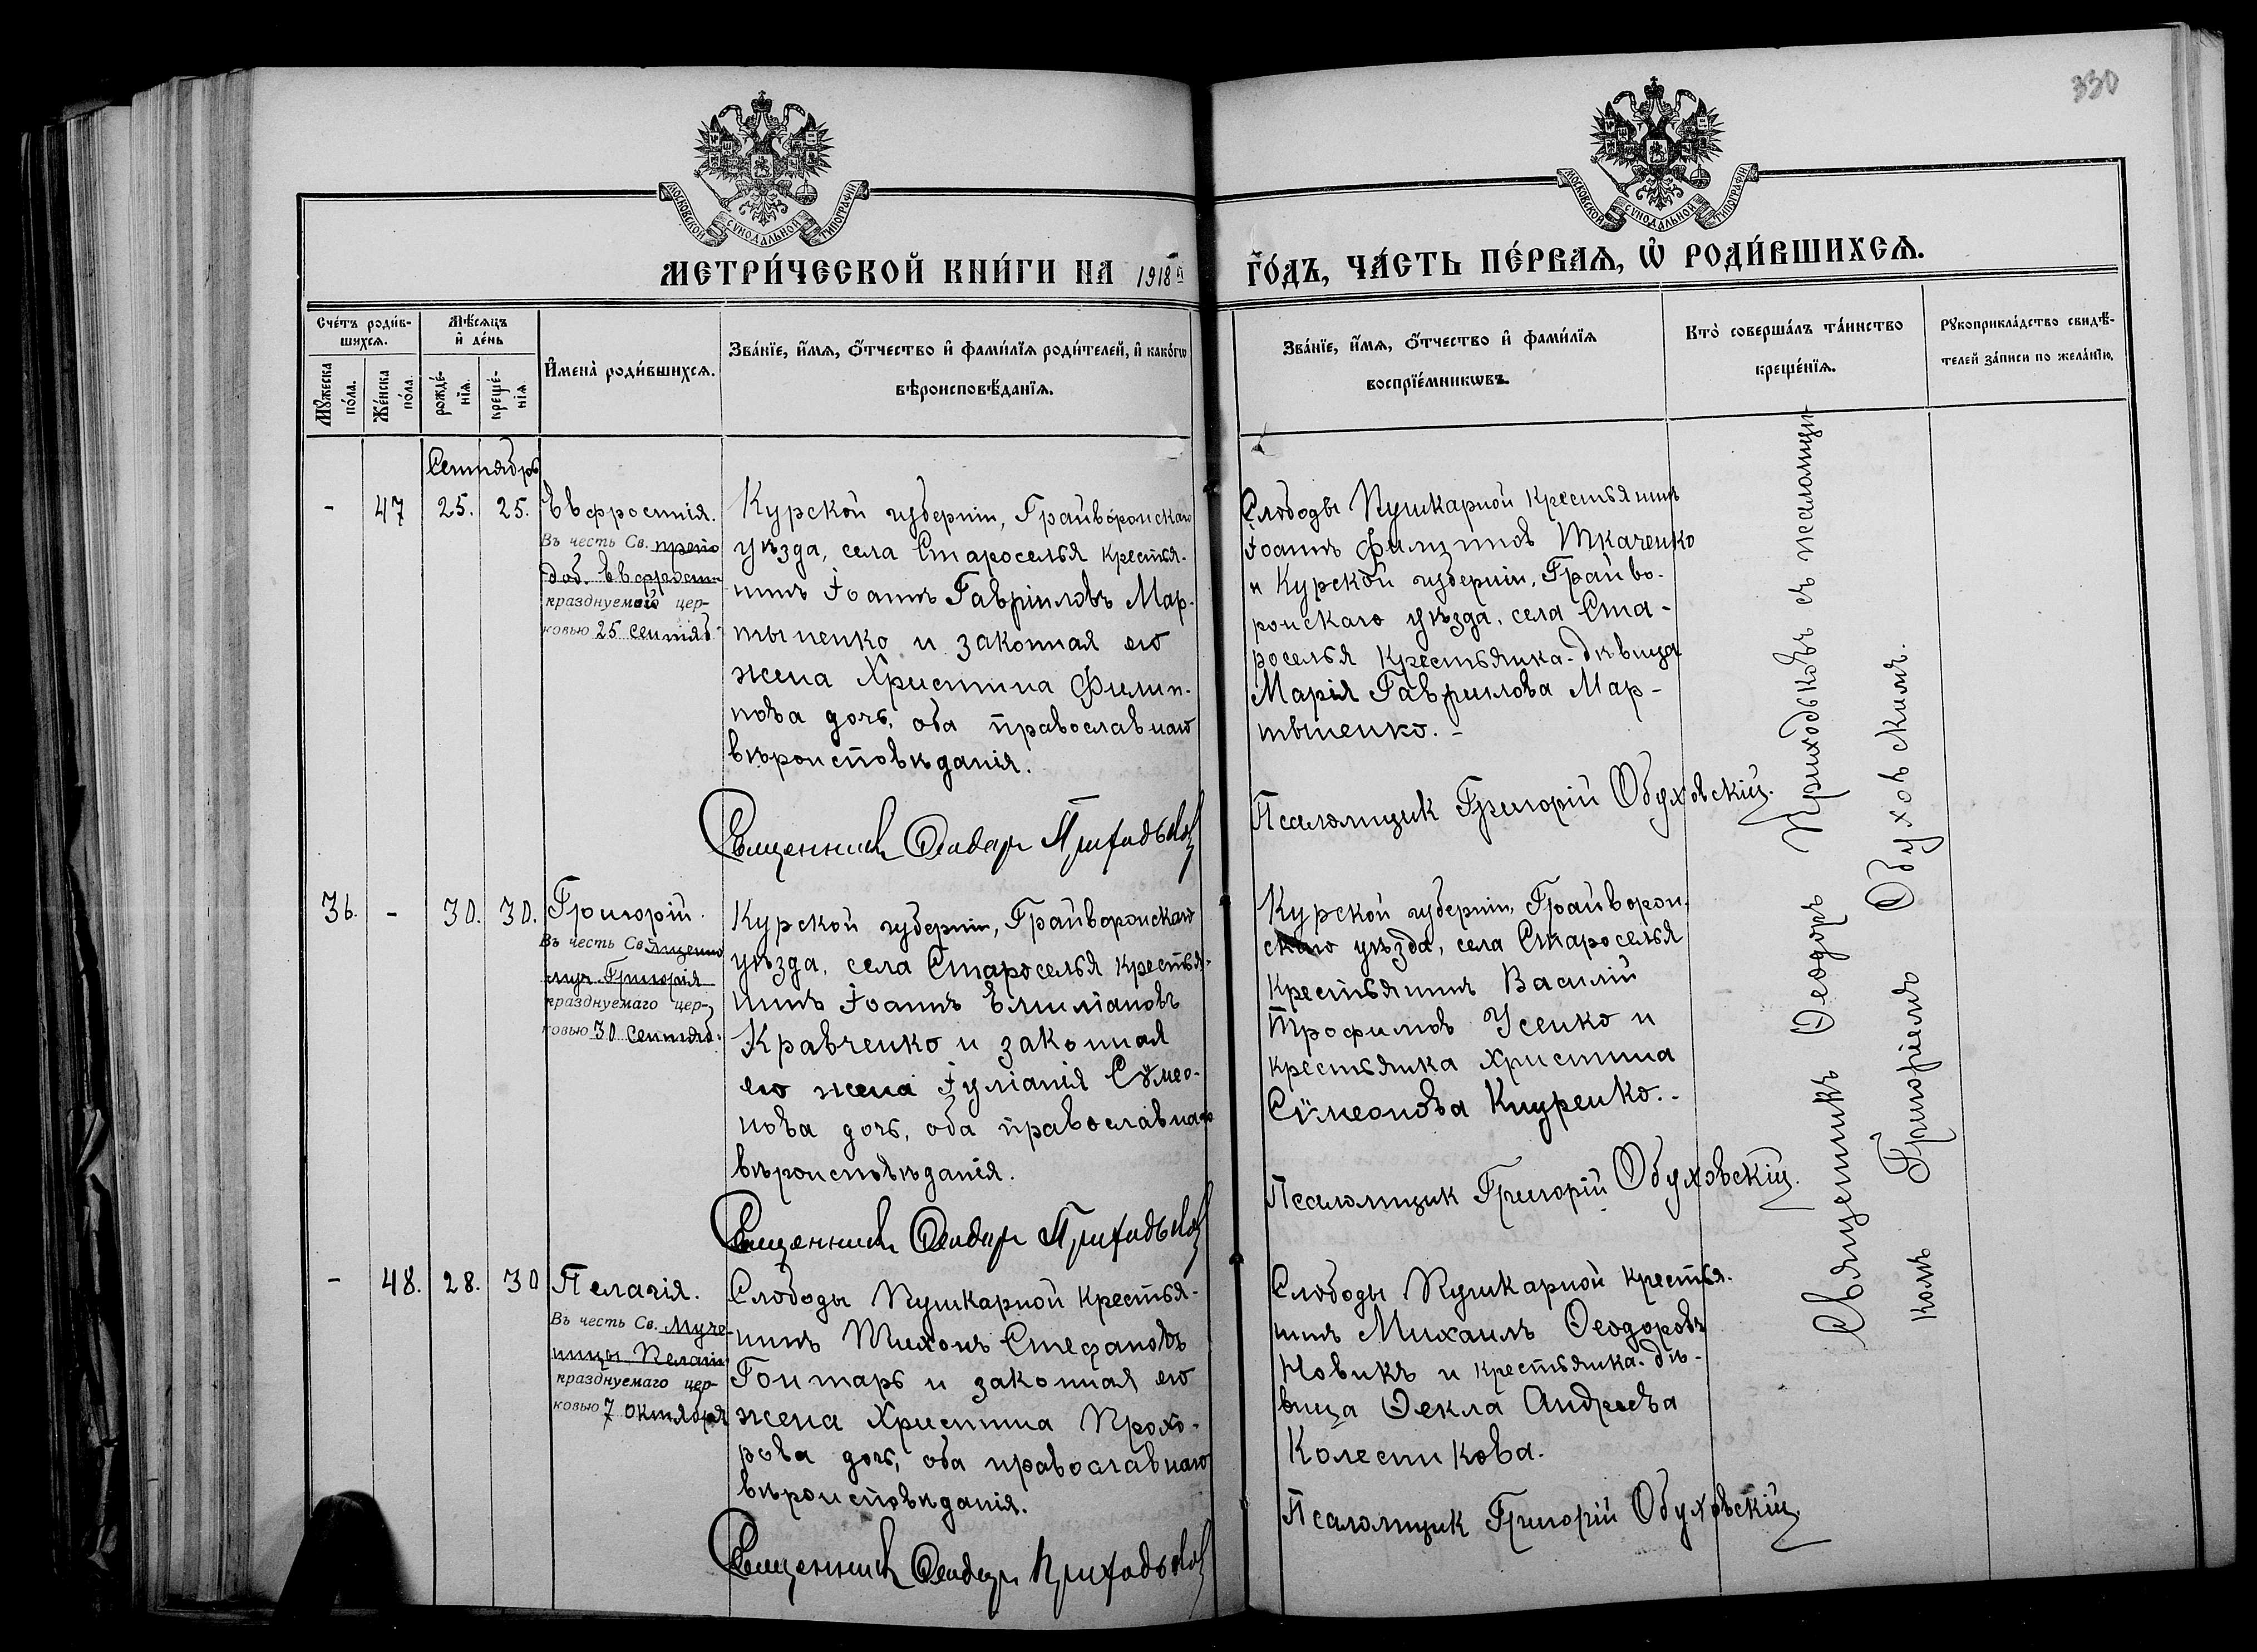 330
МОСКОВСКОЙ СѴНОДАЛЬНОЙ ТИПОГРАФІИ
МОСКОВСКОЙ СѴНОДАЛЬНОЙ ТИПОГРАФІИ
МЕТРИ́ЧЕСКОЙ КНИ́ГИ НА 1918 й ГО́ДЪ, ЧА́СТЬ ПЕ́РВАѦ, Ѡ҆ РОДИ́ВШИХСѦ.
Сче́тъ роди́в-
шихсѧ.
Мꙋ́жеска по́ла.
Же́нска по́ла.
Мѣ́сѧцъ
и҆ де́нь
рожде́-
нїѧ.
креще́-
нїѧ.
И҆мена̀ роди́вшихсѧ.
Зва́нїе, и҆́мѧ, ѻ҆́тчество и҆ фами́лїѧ роди́телей, и҆ како́гѡ
вѣроисповѣ́данїѧ.
Зва́нїе, и҆́мѧ, ѻ҆́тчество и҆ фами́лїѧ
воспрїе́мникѡвъ.
Кто̀ соверша́лъ та́инство
креще́нїѧ.
Рꙋкоприкла́дство свидѣ́-
телей за́писи по жела́нїю.
Сентябрь
- 47 25. 25.
Евфросинія.
Въ честь Св. препо
доб. Евфросин
празднуемой цер-
ковью 25 сентяб.
Курской губерніи, Грайворонскаго
уѣзда, села Староселья крестья-
нинъ Іоаннъ Гавріиловъ Мар-
тыненко и законная его
жена Христина Филип-
пова дочь, оба православнаго
вѣроисповѣданія.
Священникъ Феодоръ Приходьковъ
Слободы Пушкарной крестьянинъ
Іоаннъ Филипповъ Ткаченко
и Курской губерніи, Грайво-
ронскаго уѣзда, села Ста-
роселья крестьянка-дѣвица
Марія Гавриилова Мар-
тыненко. -
Псаломщик Григорій Обуховскій.
36. - 30. 30.
Григорій.
Въ честь Священно
муч. Григорія
празднуемаго цер-
ковью 30 сентяб.
Курской губерніи, Грайворонскаго
уѣзда, села Староселья крестья-
нинъ Іоаннъ Емиліановъ
Кравченко и законная
его жена Іуліанія Сѵмео-
нова дочь, оба православнаго
вѣроисповѣданія.
Священникъ Феодоръ Приходьковъ
Курской губерніи, Грайворон-
скаго уѣзда, села Староселья
крестьянинъ Василій
Трофимовъ Усенко и
крестьянка Христина
Сѵмеонова Кнуренко. -
Псаломщик Григорій Обуховскій.
- 48. 28. 30
Пелагія.
Въ честь Св. Муче-
ницы Пелагіи
празднуемаго цер-
ковью 7 октября
Слободы Пушкарной крестья-
нинъ Тихонъ Стефановъ
Гонтарь и законная его
жена Христина Прохо-
рова дочь, оба православнаго
вѣроисповѣданія.
Священникъ Феодоръ Приходьковъ
Слободы Пушкарной крестья-
нинъ Михаилъ Ѳеодоровъ
Новикъ и крестьянка-дѣ-
вица Ѳекла Андреева
Колесникова.
Псаломщик Григорій Обуховскій.
Священникъ Ѳеодоръ Приходьковъ съ псаломщи-
комъ Григоріемъ Обуховскимъ.